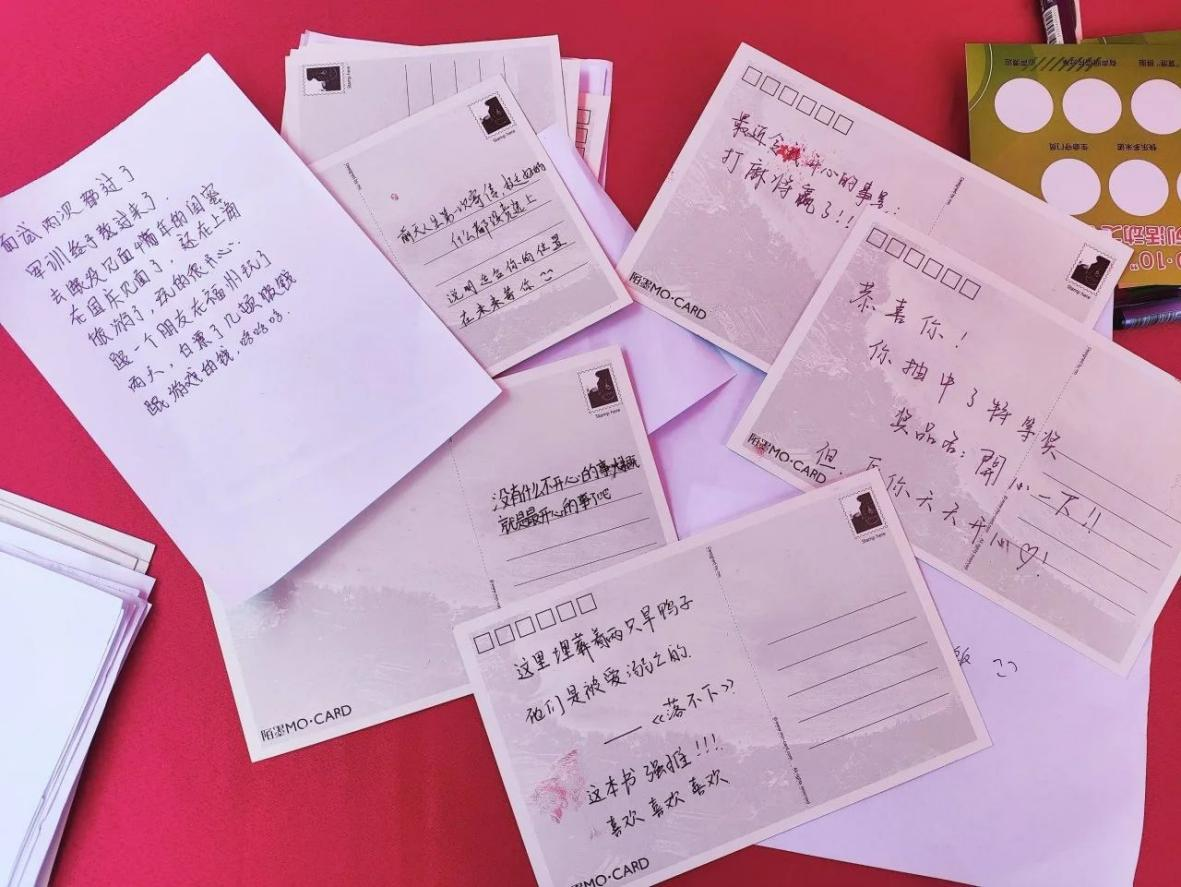 面试两次都过了
军训终于熬过来了
去跟没见面4年的闺蜜
在国庆见面了,还在上海
旅游了,玩的很开心
跟一个朋友在福州玩了
两天,白票了几顿饭钱
跟游戏的钱,哈哈哈.
Stamp here
Stamp here
前天人生第一次寄信
什么都没竞选上
说明适合你的位置
在未来等你
最近 开心的事是:
打麻将赢了!!
陌墨MO·CARD
Stamp here
恭喜你!
你抽中了特等奖
奖品名:開心一下!!
但 你天天开心♡!
陌墨MO·CARD
Stamp here
没有什么不开心的事
就是最开心的事了吧
陌墨MO·CARD
Stamp here
这里埋葬着两只旱鸭子
他们是被爱溺亡的
——《落不下》
这本书强推!!!
喜欢 喜欢 喜欢
陌墨MO·CARD
生命守门员
快乐多米诺
列活动之
0·10"